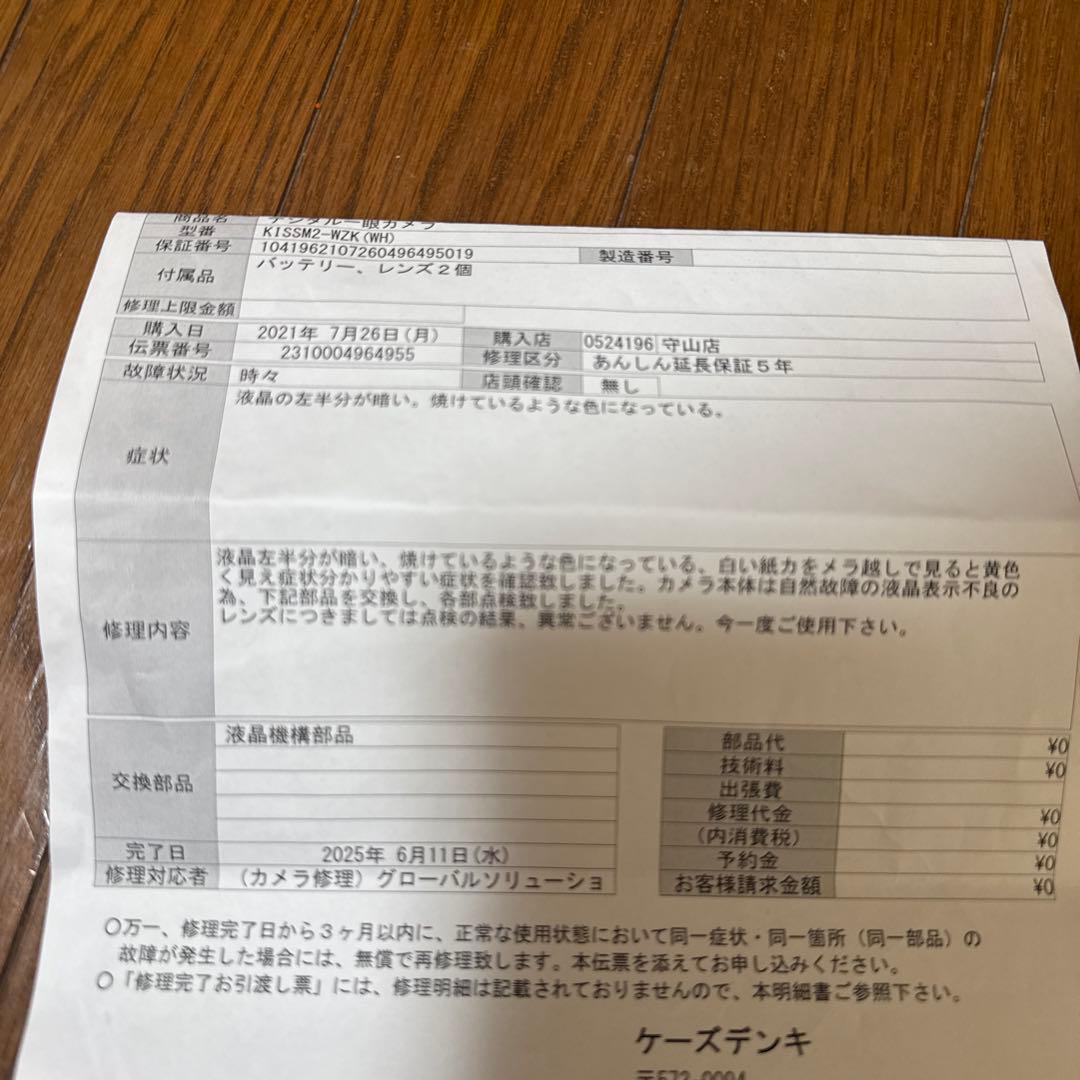 商品名 デジタル一眼カメラ
型番 KISSM2-WZK(WH)
保証番号 1041962107260496495019 製造番号
付属品 バッテリー、レンズ2個
修理上限金額
購入日 2021年 7月26日(月) 購入店 0524196 守山店
伝票番号 2310004964955 修理区分 あんしん延長保証5年
故障状況 時々 店頭確認 無し
症状 液晶の左半分が暗い。焼けているような色になっている。
修理内容 液晶左半分が暗い、焼けているような色になっている、白い紙カをメラ越しで見ると黄色
く見え症状分かりやすい症状を確認致しました。カメラ本体は自然故障の液晶表示不良の
為、下記部品を交換し、各部点検致しました。
レンズにつきましては点検の結果、異常ございません。今一度ご使用下さい。
交換部品 液晶機構部品
部品代 ¥0
技術料 ¥0
出張費
修理代金 ¥0
(内消費税) ¥0
予約金 ¥0
お客様請求金額 ¥0
完了日 2025年 6月11日(水)
修理対応者 (カメラ修理)グローバルソリューショ
○万一、修理完了日から3ヶ月以内に、正常な使用状態において同一症状・同一箇所(同一部品)の
故障が発生した場合には、無償で再修理致します。本伝票を添えてお申し込みください。
○「修理完了お引渡し票」には、修理明細は記載されておりませんので、本明細書ご参照下さい。
ケーズデンキ
〒572-0004